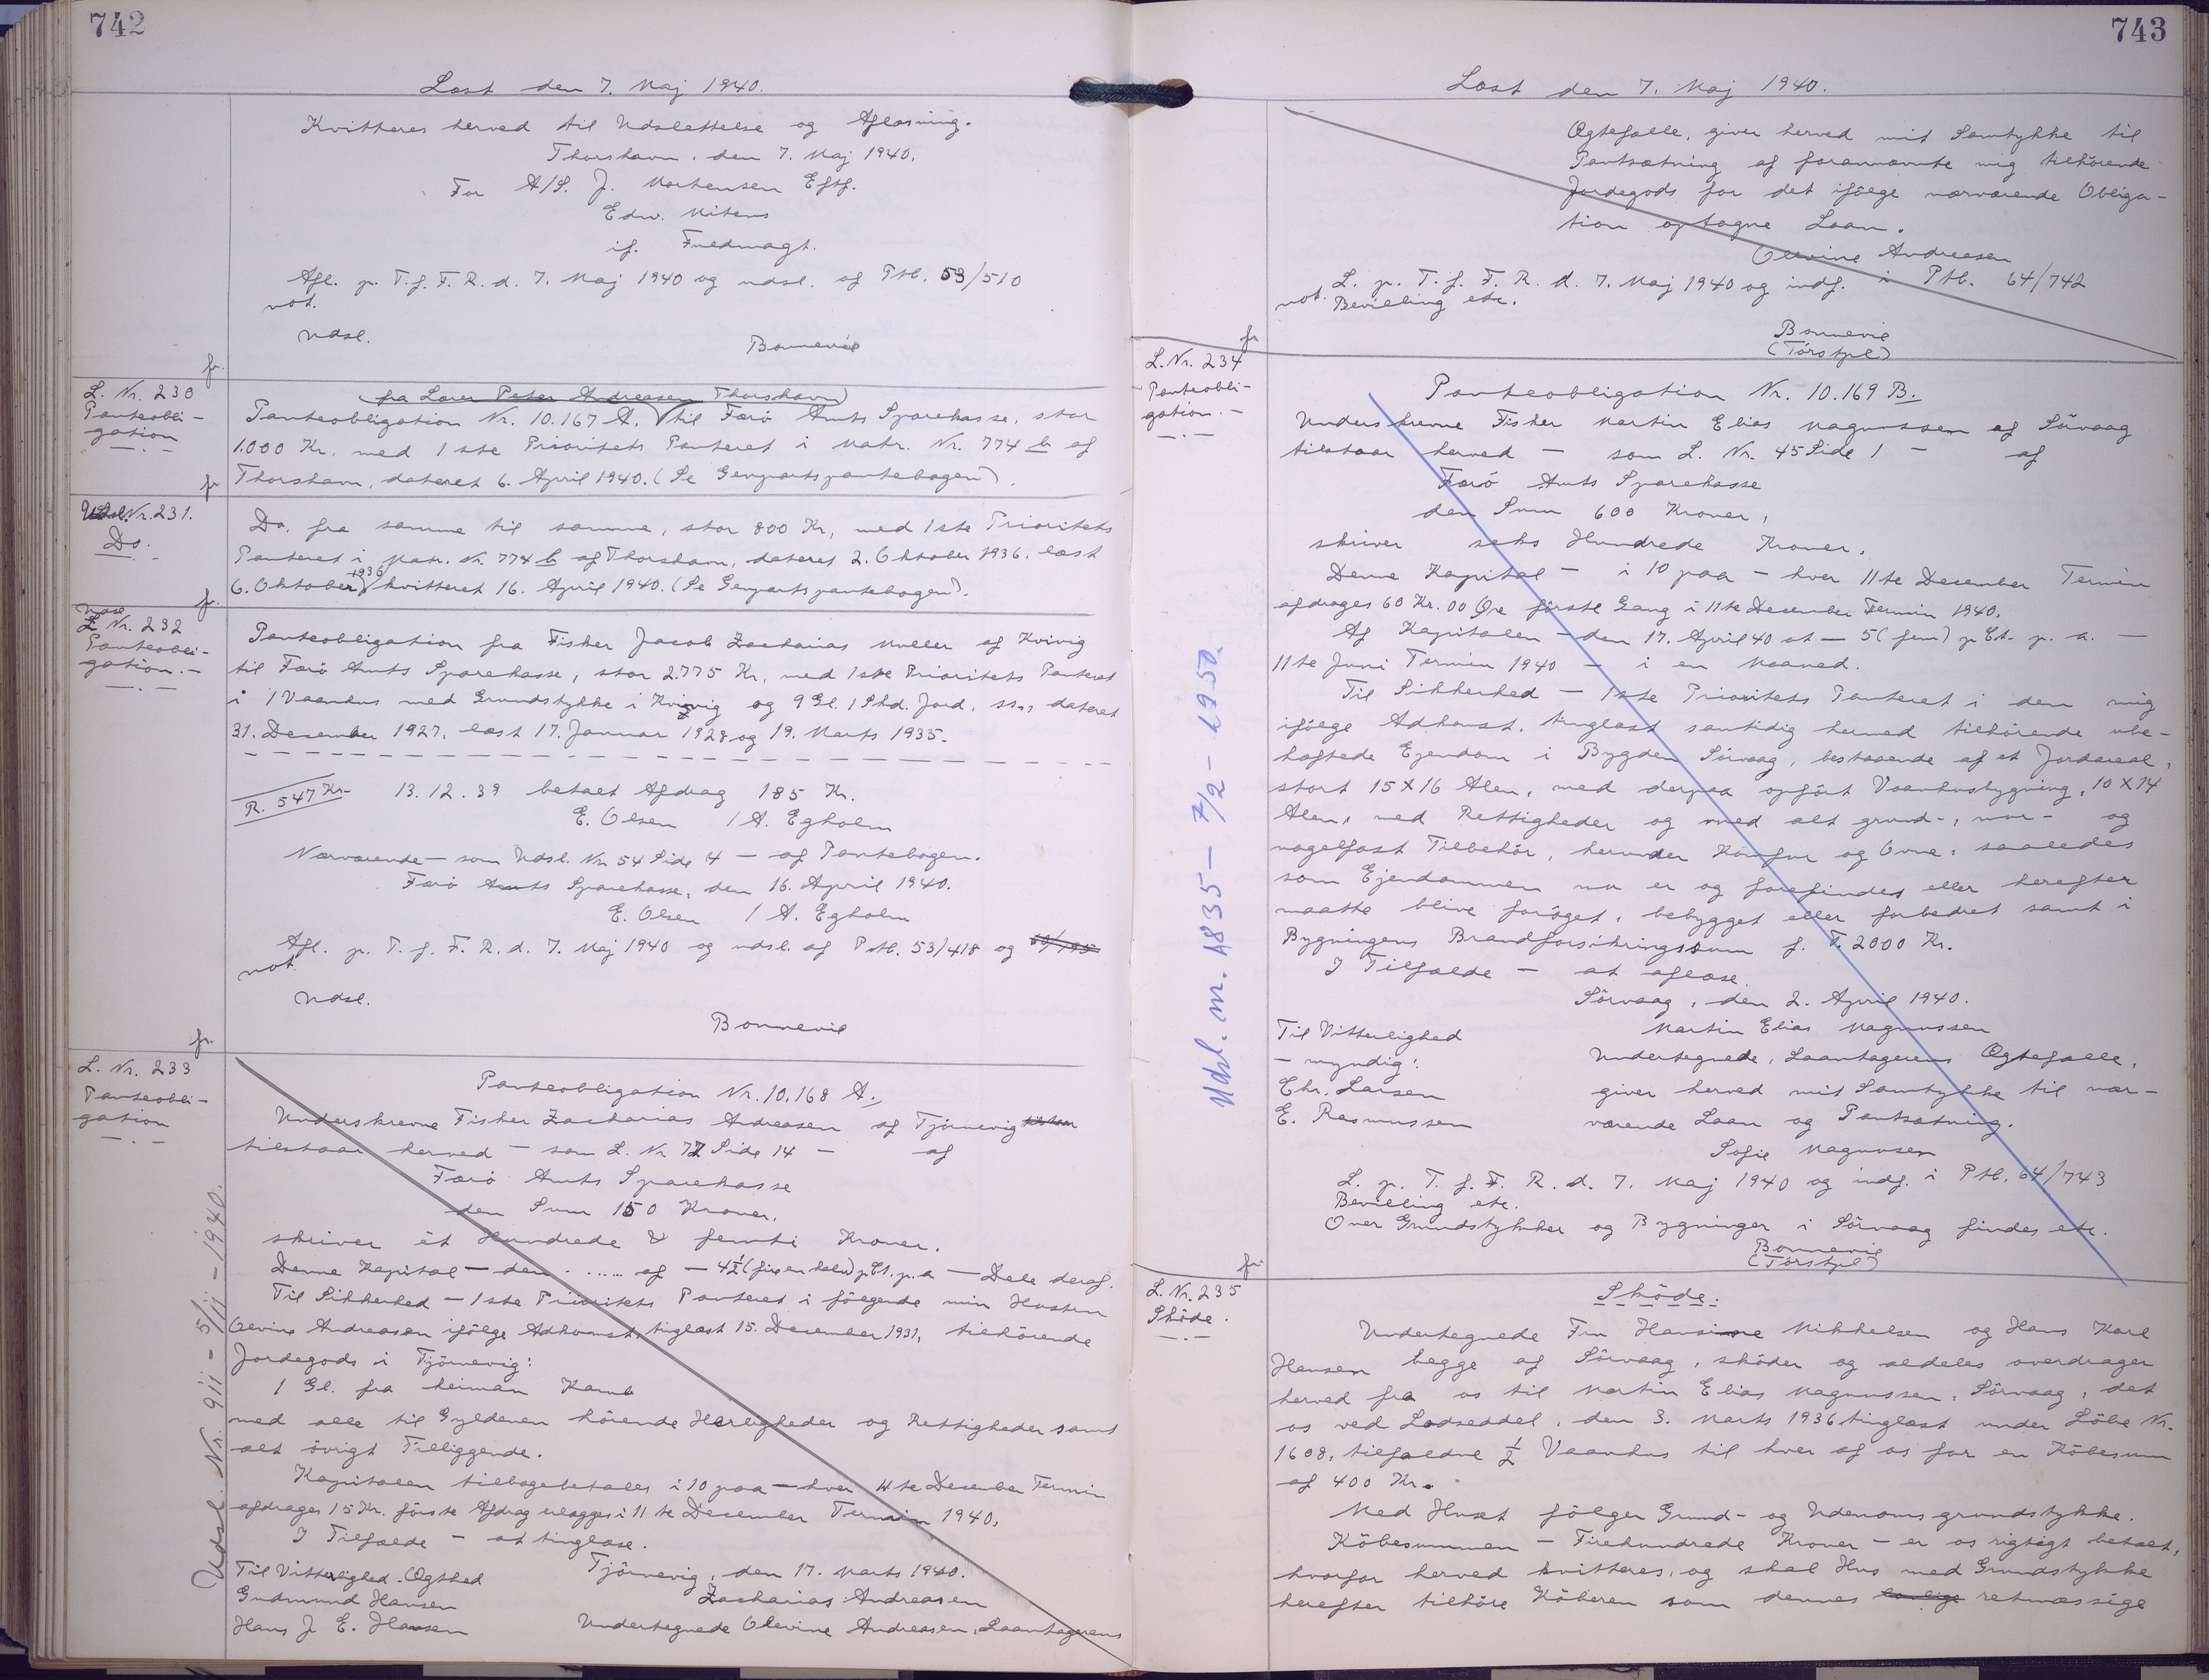 742
Læst den 7. Maj 1940.
Kvitteres herved til Udslettelse og Aflæsning.
Thorshavn, den 7. Maj 1940.
For A/S. J. Mortensen Eftf.
Edw. Mitens
if. Fuldmagt.
Afl. p. T. f. F. R. d. 7. Maj 1940 og udsl. af Ptb. 53/510
not.
Udsl.
Bonnevie
fr.
L. Nr. 230
Panteobli-
gation
fr
(fra Lærer Peter Andreasen Thorshavn)
Panteobligation Nr. 10.167 A. til Færö Amts Sparekasse, stor
1.000 Kr, med 1ste Prioritets Panteret i Matr. Nr. 774 b af
Thorshavn, dateret 6. April 1940. (Se Genpartspantebogen).
Udsl. Nr. 231.
Do.
fr.
Do. fra samme til samme, stor 800 Kr, med 1ste Prioritets
Panteret i Matr. Nr. 774 b af Thorshavn, dateret 2. Oktober 1936, læst
6. Oktober 1936 kvitteret 16. April 1940. (Se Genpartspantebogen).
Udsl.
L Nr. 232
Panteobli-
gation.-
Panteobligation fra Fisker Jacob Zacharias Müller af Kvivig
til Færö Amts Sparekasse, stor 2.775 Kr, med 1ste Prioritets Panteret
i 1 Vaanhus med Grundstykke i Kvivig og 9 Gl. 1 Skd. Jord, ss., dateret
31. December 1927, læst 17. Januar 1928 og 19. Marts 1935.
R. 547 Kr- 13.12.39 betalt Afdrag 185 Kr.
E. Olsen / A. Egholm
Nærværende - som Udsl. Nr 54 Side 4 - af Pantebogen.
Færö Amts Sparekasse, den 16. April 1940.
E. Olsen / A. Egholm
Afl. p. T. f. F. R. d. 7. Maj 1940 og udsl. af Ptb. 53/418 og
not.
Udsl.
Bonnevie
fr.
L. Nr. 233
Panteobli-
gation
Udsl. Nr. 911 - 5/11 - 1940.
Panteobligation Nr. 10.168 A.
Underskrevne Fisker Zacharias Andreasen af Tjörnevig tilstaar
tilstaar herved - som L. Nr 72 Side 14 - af
Færö Amts Sparekasse
den Sum 150 Kroner,
skriver ét Hundrede & femti Kroner.
Denne Kapital - den ...... af - 4½ (fire en halv) p Ct. p. a - Dele deraf.
Til Sikkerhed - 1ste Prioritets Panteret i fölgende min Hustru
Olevine Andreasen ifölge Adkomst, tiglæst 15. December 1931, tilhörende
Jordegods i Tjörnevig:
1 Gl. fra heiman Kamb
med alle til Gyldenen hörende Herligheder og Rettigheder samt
alt övrigt Tilliggende.
Kapitalen tilbagebetales i 10 paa - hver 11te December Termin
afdrages 15 Kr. förste Afdrag erlægges i 11te December Termin 1940,
I Tilfælde - at tinglæse.
Tjörnevig, den 17. Marts 1940.
Til Vitterlighed. (Ægthed
Zacharias Andreasen
Gudmund Hansen
Hans J. E. Hansen
Undertegnede Olevine Andreasen, Laantagerens
743
Læst den 7. Maj 1940.
Ægtefælle, giver herved mit Samtykke til
Pantsætning af forannævnte mig tilhörende
Jordegods for det ifölge nærværende Obliga-
tion optagne Laan.
Olevine Andreasen
L. p. T. f. F. R. d. 7. Maj 1940 og indf. i Ptb. 64/742
not. Bevilling etc.
Bonnevie
(Törstpl)
fr
L. Nr. 234
Panteobli-
gation.-
Udsl. nr. 1835 - 7/2 - 1950
Panteobligation Nr. 10.169 B.
Underskrevne Fisker Martin Elias Magnussen af Sörvaag
tilstaar herved - som L. Nr. 45 Side 1 - af
Færö Amts Sparekasse
den Sum 600 Kroner,
skriver seks Hundrede Kroner.
Denne Kapital - i 10 paa - hver 11te December Termin
afdrages 60 Kr. 00 Øre förste Gang i 11te December Termin 1940.
Af Kapitalen - den 17. April 40 at - 5 (fem) p Ct. p. a. -
11te Juni Termin 1940 - i en Maaned.
Til Sikkerhed - 1ste Prioritets Panteret i den mig
ifölge Adkomst, tinglæst samtidig hermed tilhörende ube-
hæftede Ejendom i Bygden Sörvaag, bestaaende af et Jordareal,
stort 15 X 16 Alen, med derpaa opfört Vaanhusbygning, 10 X 14
Alen, med Rettigheder og med alt grund-, mur- og
nagelfast Tilbehör, herunder Komfur og Ovne, saaledes
som Ejendommen nu er og forefindes eller herefter
maatte blive foröget, bebygget eller forbedret samt i
Bygningens Brandforsikringssum f. T. 2000 Kr.
I Tilfælde - at aflæse.
Sörvaag, den 2. April 1940.
Til Vitterlighed
Martin Elias Magnussen
- myndig:
Undertegnede, Laantagerens Ægtefælle,
Chr. Larsen
giver herved mit Samtykke til nær-
E. Rasmussen
værende Laan og Pantsætning.
Sofie Magnussen
L. p. T. f. F. R. d. 7. Maj 1940 og indf. i Ptb. 64/743
Bevilling etc.
Over Grundstykker og Bygninger i Sörvaag findes etc.
Bonnevie
(Törstpl)
fr
L. Nr. 235
Sköde.
Sköde.
Undertegnede Fru Hansine Mikkelsen og Hans Karl
Hansen begge af Sörvaag, sköder og aldeles overdrager
herved fra os til Martin Elias Magnussen, Sörvaag, det
os ved Lodseddel, den 3. Marts 1936 tinglæst under Löbe Nr.
1608, tilfaldne ½ Vaanhus til hver af os for en Köbesum
af 400 Kr.
Med Huset fölger Grund- og Udenomsgrundstykke.
Köbesummen - Firehundrede Kroner - er os rigtigt betalt,
hvorfor herved kvitteres, og skal Hus med Grundstykke
herefter tilhöre Köberen som dennes lovlige retmæssige